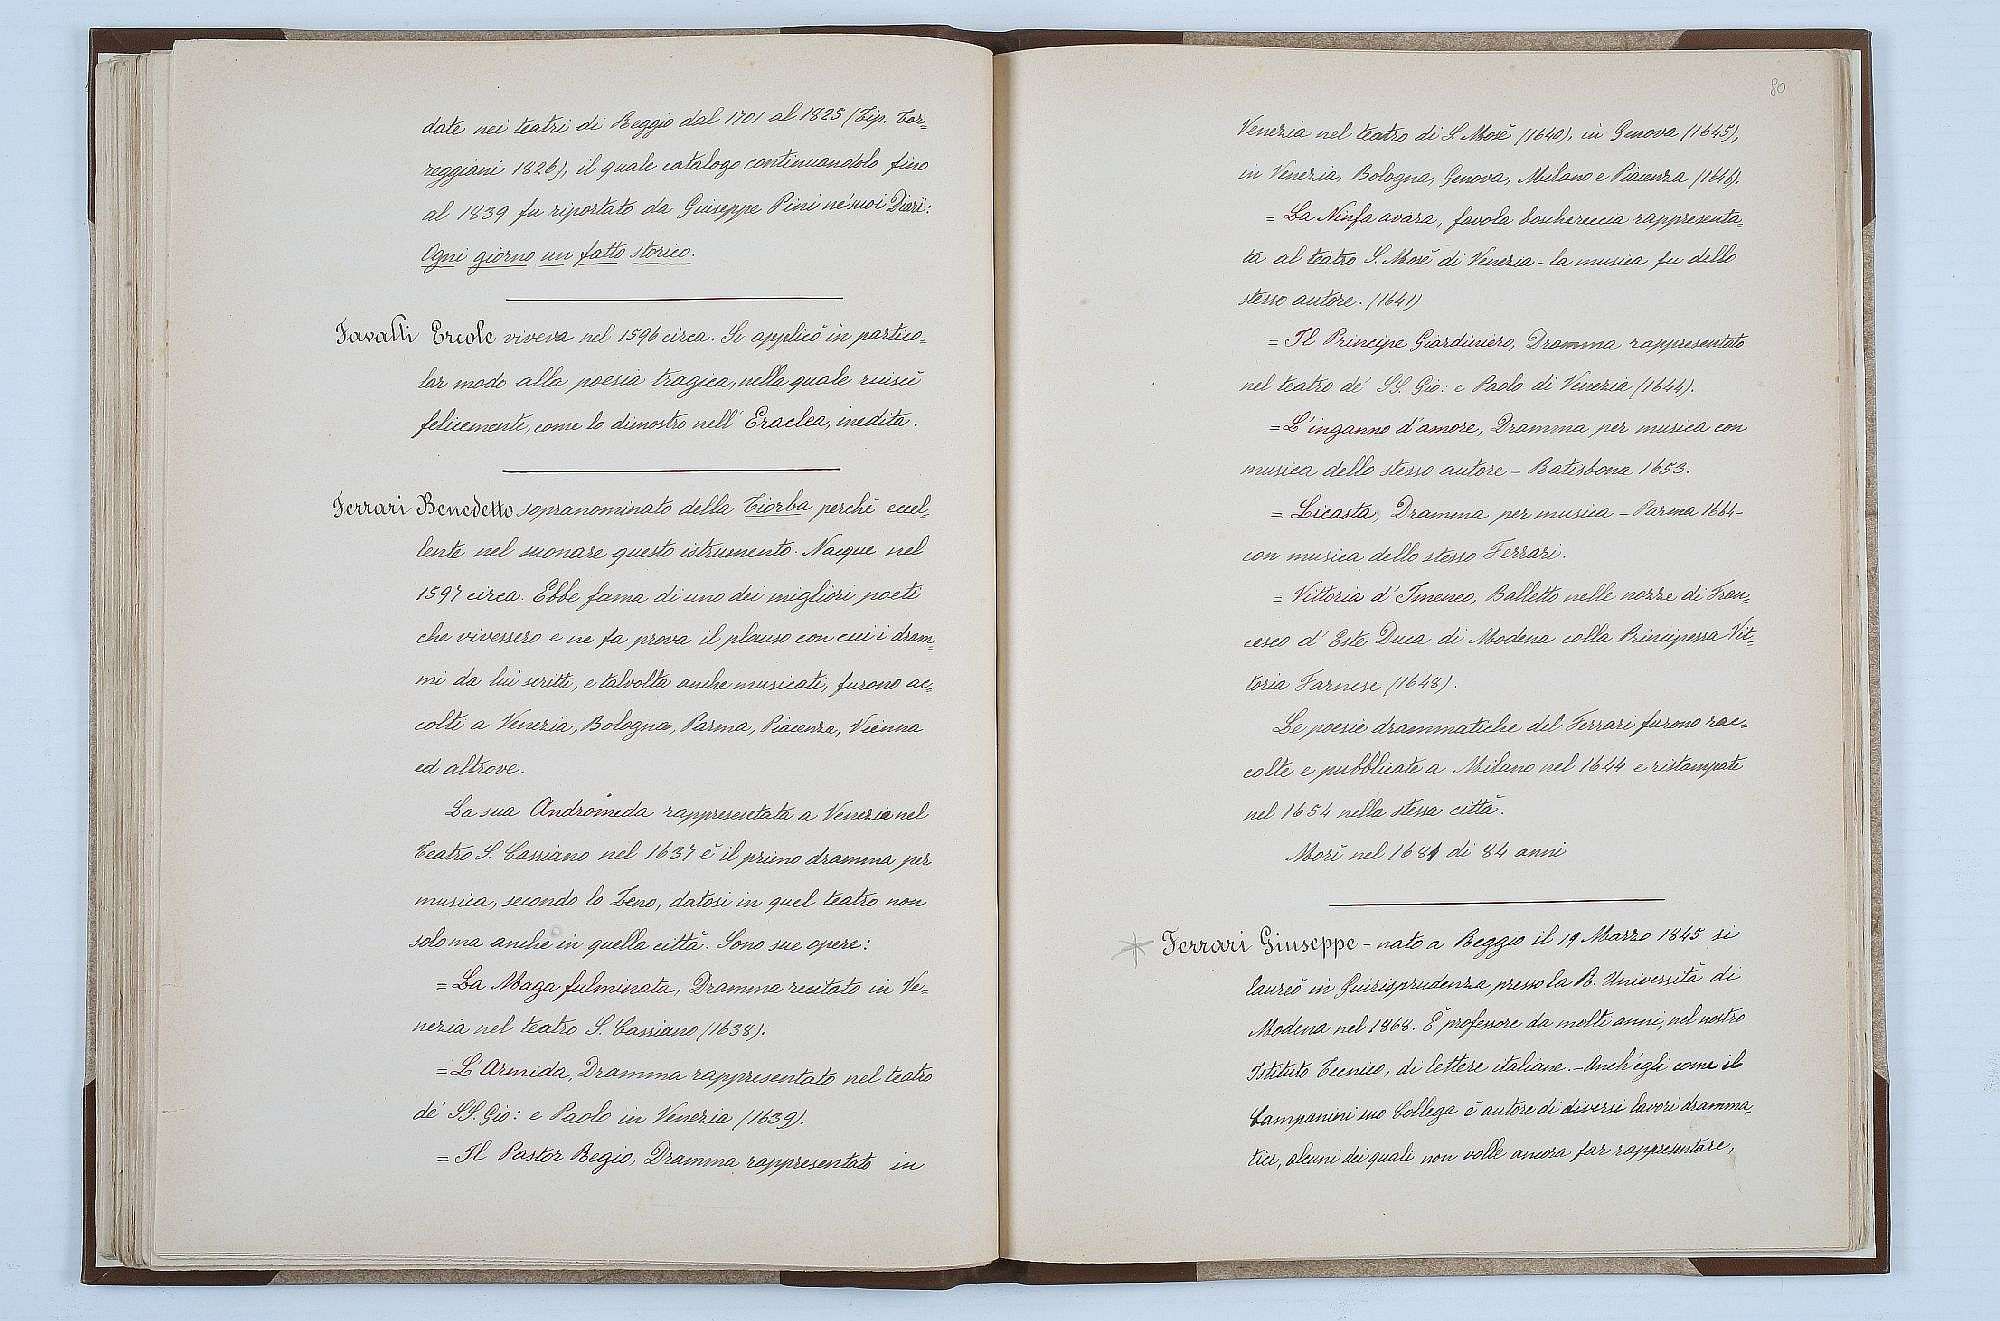 date nei teatri di Reggio dal 1701 al 1825 (Tip. Tor=
reggiani 1826), il quale catalogo continuandolo fino
al 1839 fu riportato da Giuseppe Pini ne' suoi Diari:
Ogni giorno un fatto storico.
Favalli Ercole viveva nel 1596 circa. Si applicò in partico=
lar modo alla poesia tragica, nella quale riuscì
felicemente, come lo dimostro nell' Eraclea, inedita.
Ferrari Benedetto sopranominato della Tiorba perchè eccel=
lente nel suonare questo istrumento. Nacque nel
1597 circa. Ebbe fama di uno dei migliori poeti
che vivessero e ne fa prova il plauso con cui i dram=
mi da lui scritti, e talvolta anche musicati, furono ac=
colti a Venezia, Bologna, Parma, Piacenza, Vienna
ed altrove.
La sua Andromeda rappresentata a Venezia nel
Teatro S. Cassiano nel 1637 è il primo dramma per
musica, secondo lo Zeno, datosi in quel teatro non
solo ma anche in quella città. Sono sue opere:
= La Maga fulminata, Dramma recitato in Ve=
nezia nel teatro S. Cassiano (1638).
= L'Armida, Dramma rappresentato nel teatro
de' SS. Gio: e Paolo in Venezia (1639).
= Il Pastor Regio, Dramma rappresentato in
80
Venezia nel teatro di S. Mosè (1640), in Genova (1645),
in Venezia, Bologna, Genova, Milano e Piacenza (1646).
= La Ninfa avara, favola boschereccia rappresenta=
ta al teatro S. Mosè di Venezia - la musica fu dello
stesso autore. (1641)
= Il Principe Giardiniero, Dramma rappresentato
nel teatro de' SS. Gio: e Paolo di Venezia (1644).
= L'inganno d'amore, Dramma per musica con
musica dello stesso autore - Ratisbona 1653.
= Licasta, Dramma per musica - Parma 1664 -
con musica dello stesso Ferrari.
= Vittoria d' Imeneo, Balletto nelle nozze di Fran=
cesco d' Este Duca di Modena colla Principessa Vit=
toria Farnese (1648).
Le poesie drammatiche del Ferrari furono rac=
colte e pubblicate a Milano nel 1644 e ristampate
nel 1654 nella stessa città.
Morì nel 1681 di 84 anni
Ferrari Giuseppe - nato a Reggio il 19 Marzo 1845 si
laureò in Giurisprudenza presso la R. Università di
Modena nel 1868. È professore da molti anni, nel nostro
Istituto Tecnico, di lettere italiane. - Anch'egli come il
Campanini suo Collega è autore di diversi lavori dramma=
tici, alcuni dei quali non volle ancora far rappresentare,